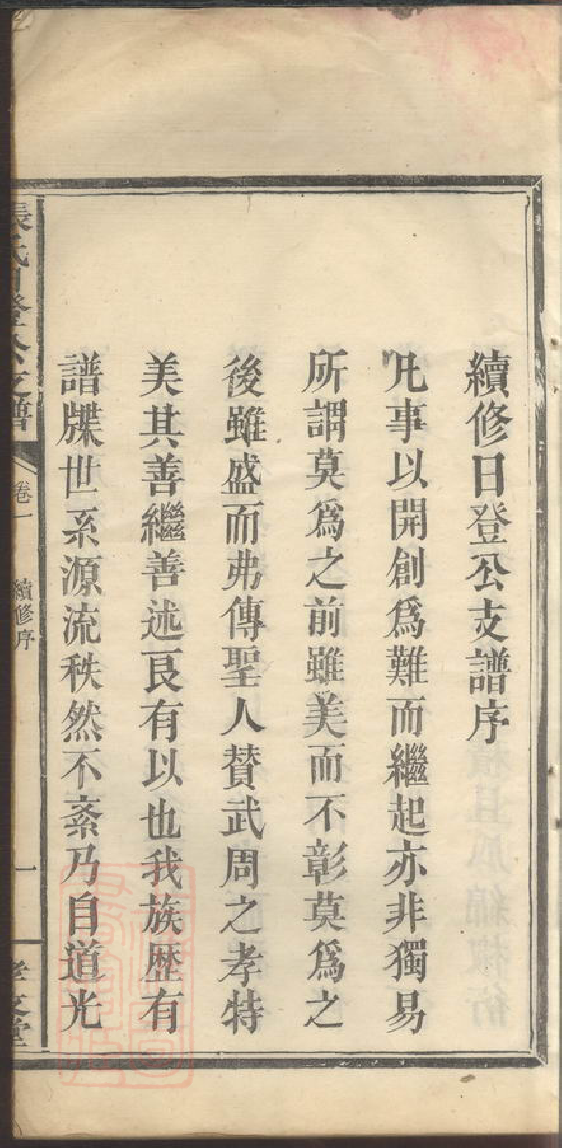 續修日登公支譜序
凡事以開創爲難而繼起亦非獨易
所謂莫爲之前雖美而不彰莫爲之
後雖盛而弗傳聖人贊武周之孝特
美其善繼善述良有以也我族歴有
譜牒世系源流秩然不紊乃自道光
張氏日登公支譜
卷一
續修序
一
孝友堂